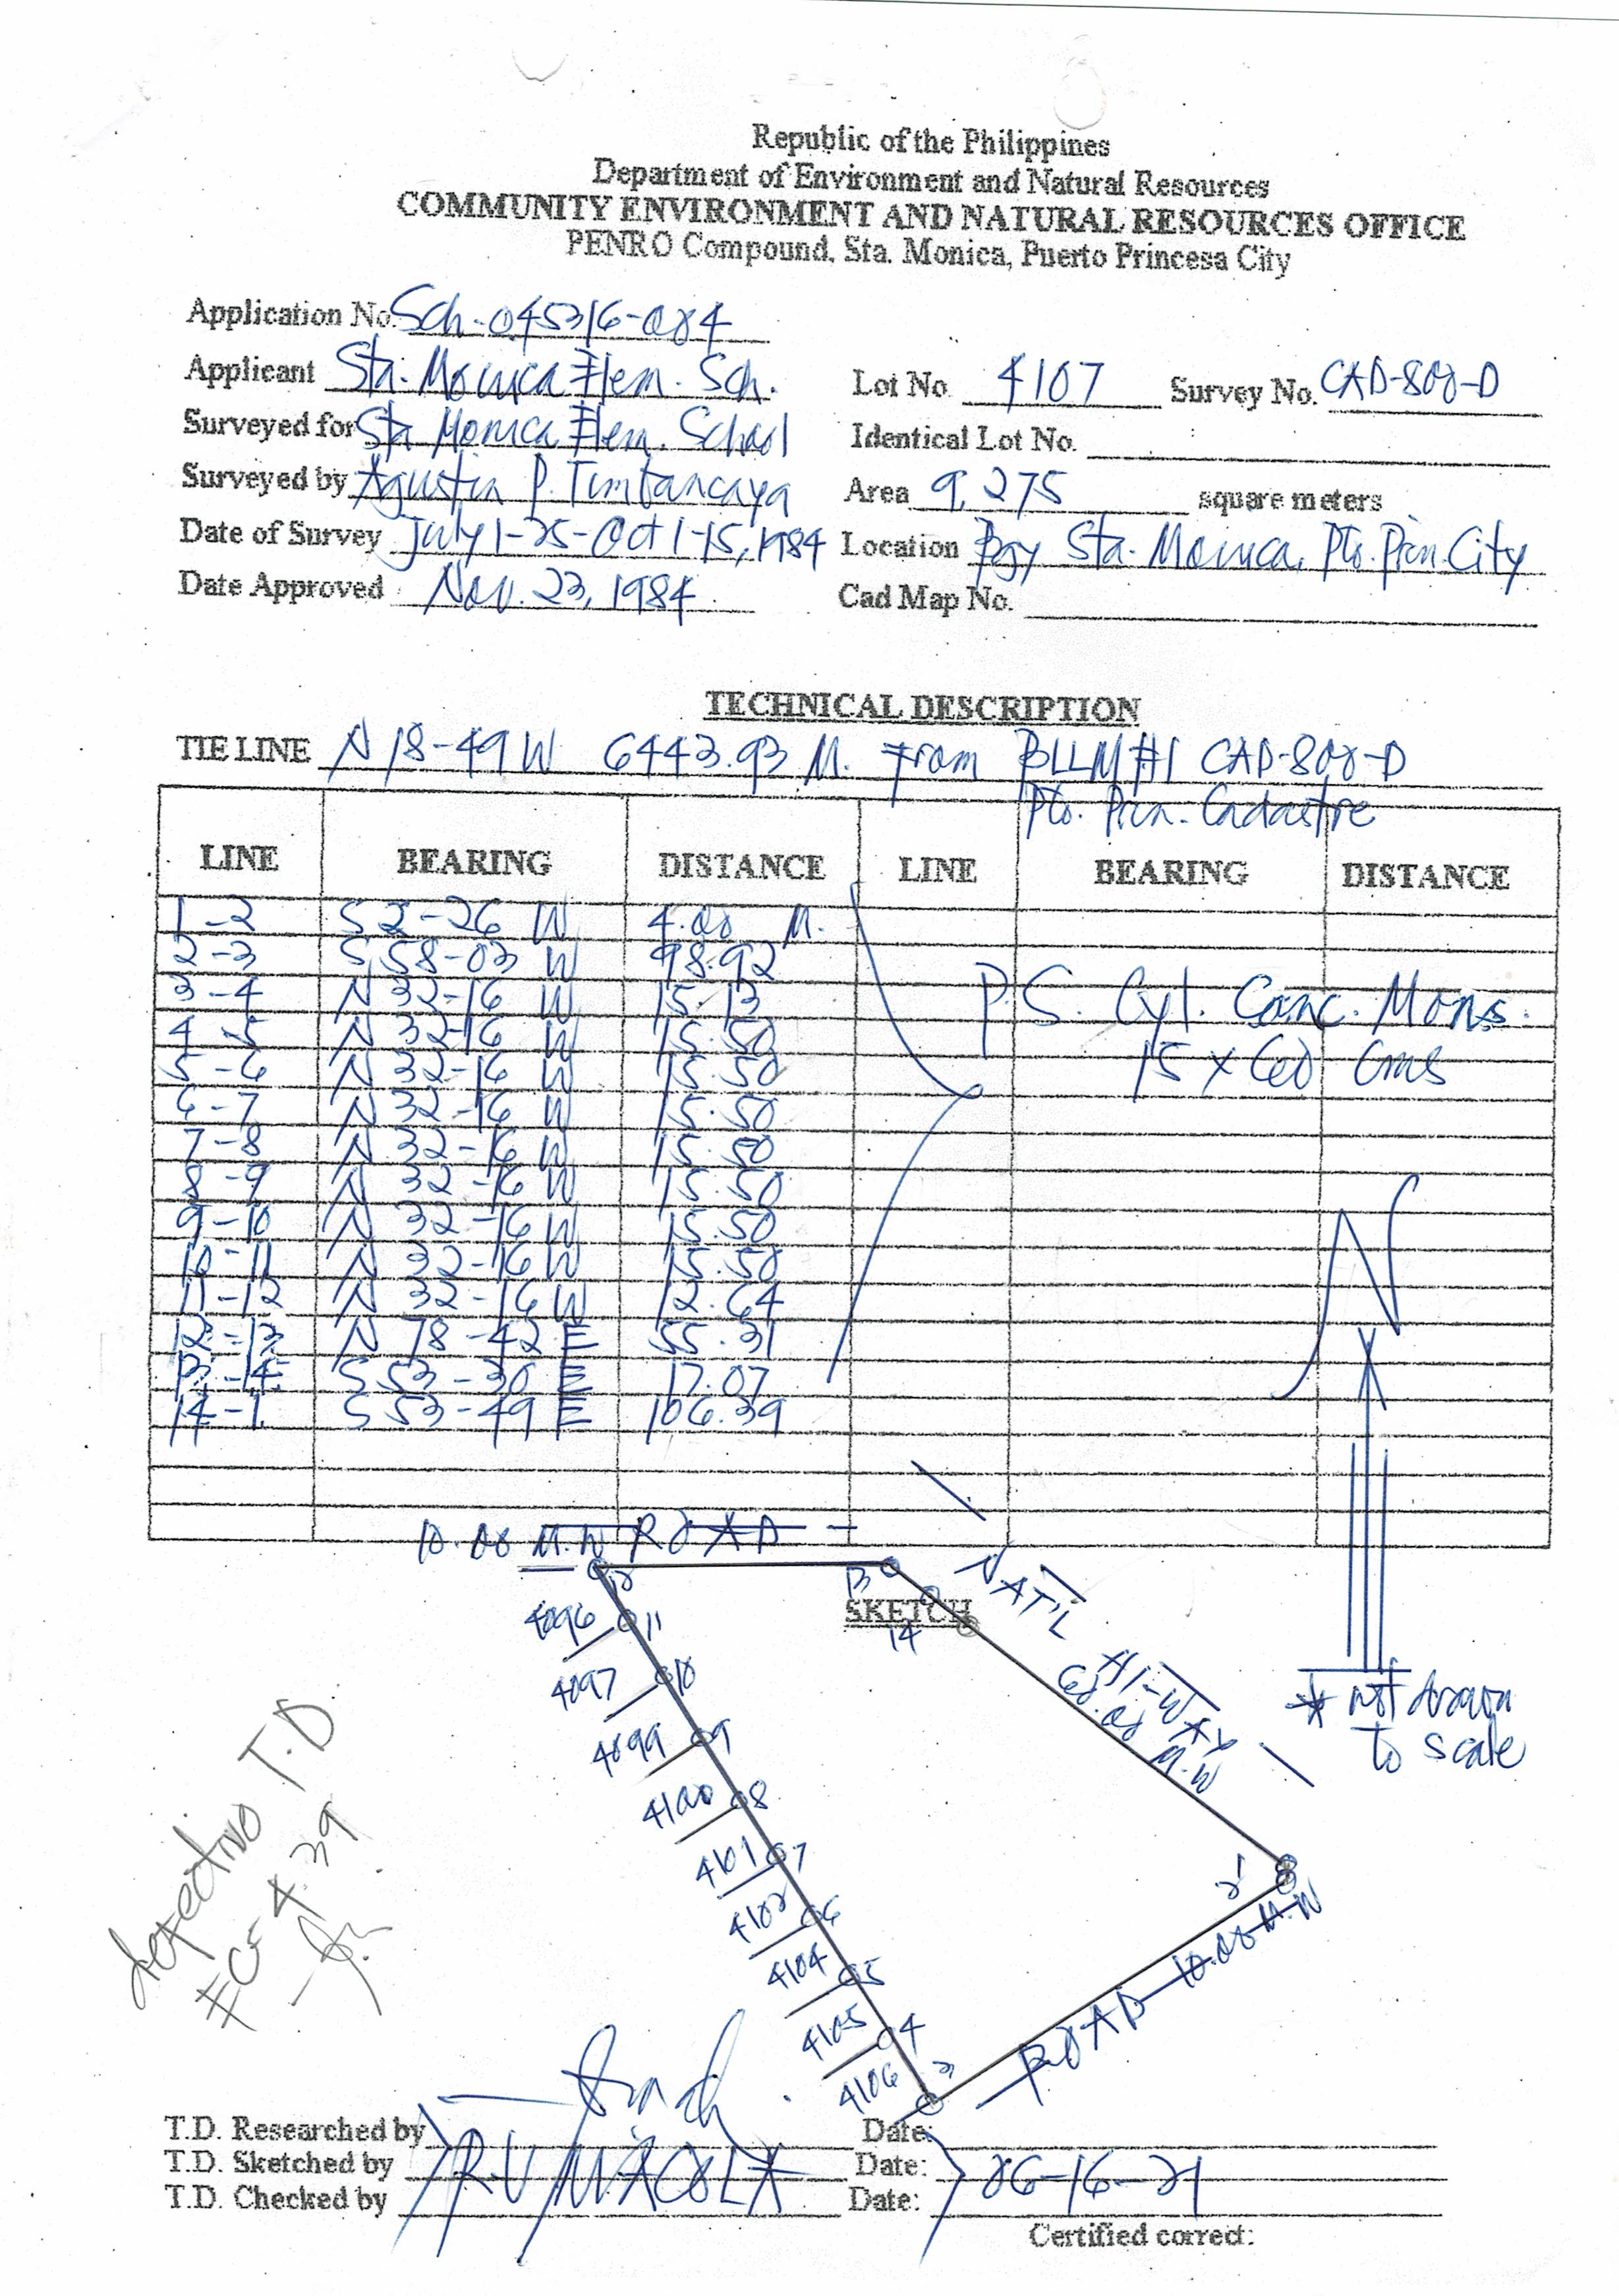 Republic of the Philippines
Department of Environment and Natural Resources
COMMUNITY ENVIRONMENT AND NATURAL RESOURCES OFFICE
PENRO Compound, Sta. Monica, Puerto Princesa City
Application No. Sch-045316-004
Applicant Sta. Monica Elem. Sch.
Lot No. 4107 Survey No. CAD-800-D
Surveyed for Sta Monica Elem. School
Identical Lot No.
Surveyed by Agustin P. Timbancaya
Area 9,275 square meters
Date of Survey July 1-25-Oct 1-15, 1984
Location Bgy Sta. Monica, Pto. Prin. City
Date Approved Nov. 23, 1984
Cad Map No.
TECHNICAL DESCRIPTION
TIE LINE N 18-49 W 6443.93 M. From BLLM #1 CAD-800-D
Pto. Prin. Cadastre
LINE BEARING DISTANCE LINE BEARING DISTANCE
1-2 S 2-26 W 4.00 M.
2-3 S 58-03 W 98.92
3-4 N 32-16 W 15.13
4-5 N 32-16 W 15.50
5-6 N 32-16 W 15.50
6-7 N 32-16 W 15.50
7-8 N 32-16 W 15.50
8-9 N 32-16 W 15.50
9-10 N 32-16 W 15.50
10-11 N 32-16 W 15.50
11-12 N 32-16 W 12.64
12-13 N 78-42 E 55.31
13-14 S 53-30 E 17.07
14-1 S 53-49 E 106.39
P.S. Cyl. Conc. Mons.
15 x 60 Cms
N
10.00 M.W ROAD
SKETCH
12
13
14
NAT'L HI-WAY
60.00 M.W
4096
11
4097
10
4099
9
4100
8
4101
7
4102
6
4104
5
4105
4
4106
3
2
ROAD 10.00 M.W
* not drawn
to scale
defective T.D.
EC= 4.39
T.D. Researched by
Date:
T.D. Sketched by R V MACOLA
Date: 06-16-21
T.D. Checked by
Date:
Certified correct: